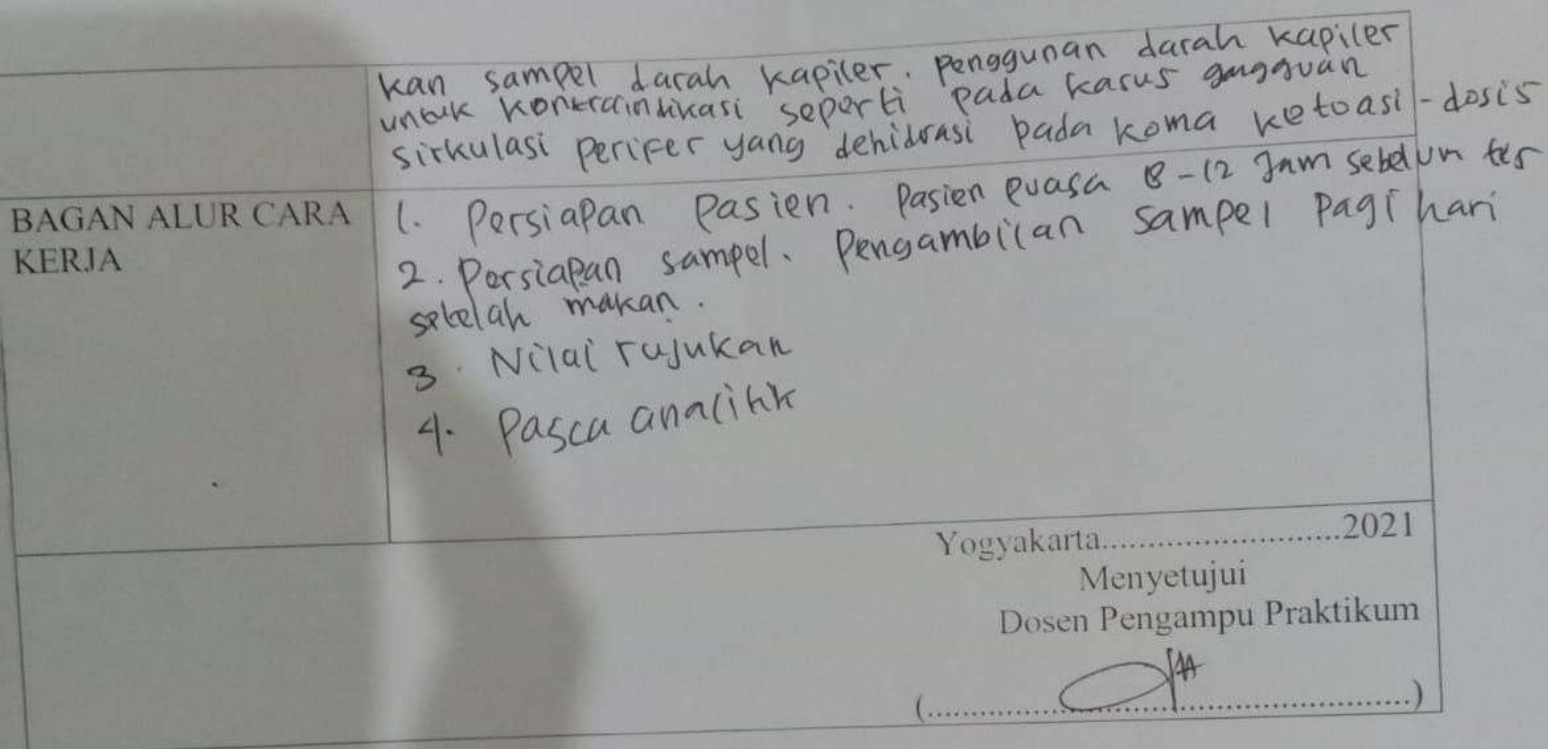 kan sampel darah kapiler. penggunan darah kapiler
untuk kontraindikasi seperti pada kasus gangguan
sirkulasi perifer yang dehidrasi pada koma ketoasi-dosis
BAGAN ALUR CARA
KERJA
1. Persiapan Pasien. Pasien puasa 8-12 Jam sebelum tes
2. Persiapan sampel. Pengambilan sampel Pagi hari
setelah makan.
3. Nilai rujukan
4. Pasca analitik
Yogyakarta...........................2021
Menyetujui
Dosen Pengampu Praktikum
(....................................................)